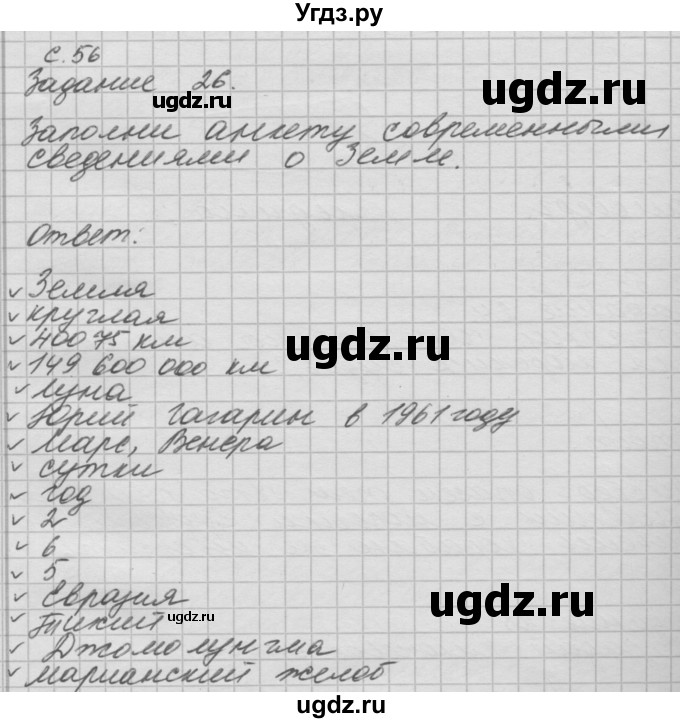 Угдз.ру
с. 56
Задание 26.
ugdz.ru
ugdz.ru
Заполни анкету современными
сведениями о Земле.
Ответ:
✓ Земля
✓ круглая
✓ 40075 км
ugdz.ru
✓ 149 600 000 км
✓ Луна
✓ Юрий Гагарин в 1961 году
✓ Марс, Венера
✓ сутки
✓ год
✓ 2
✓ 6
✓ 5
✓ Евразия
ugdz.ru
✓ Тихий
ugdz.ru
✓ Джомолунгма
✓ Марианский желоб
ugdz.ru